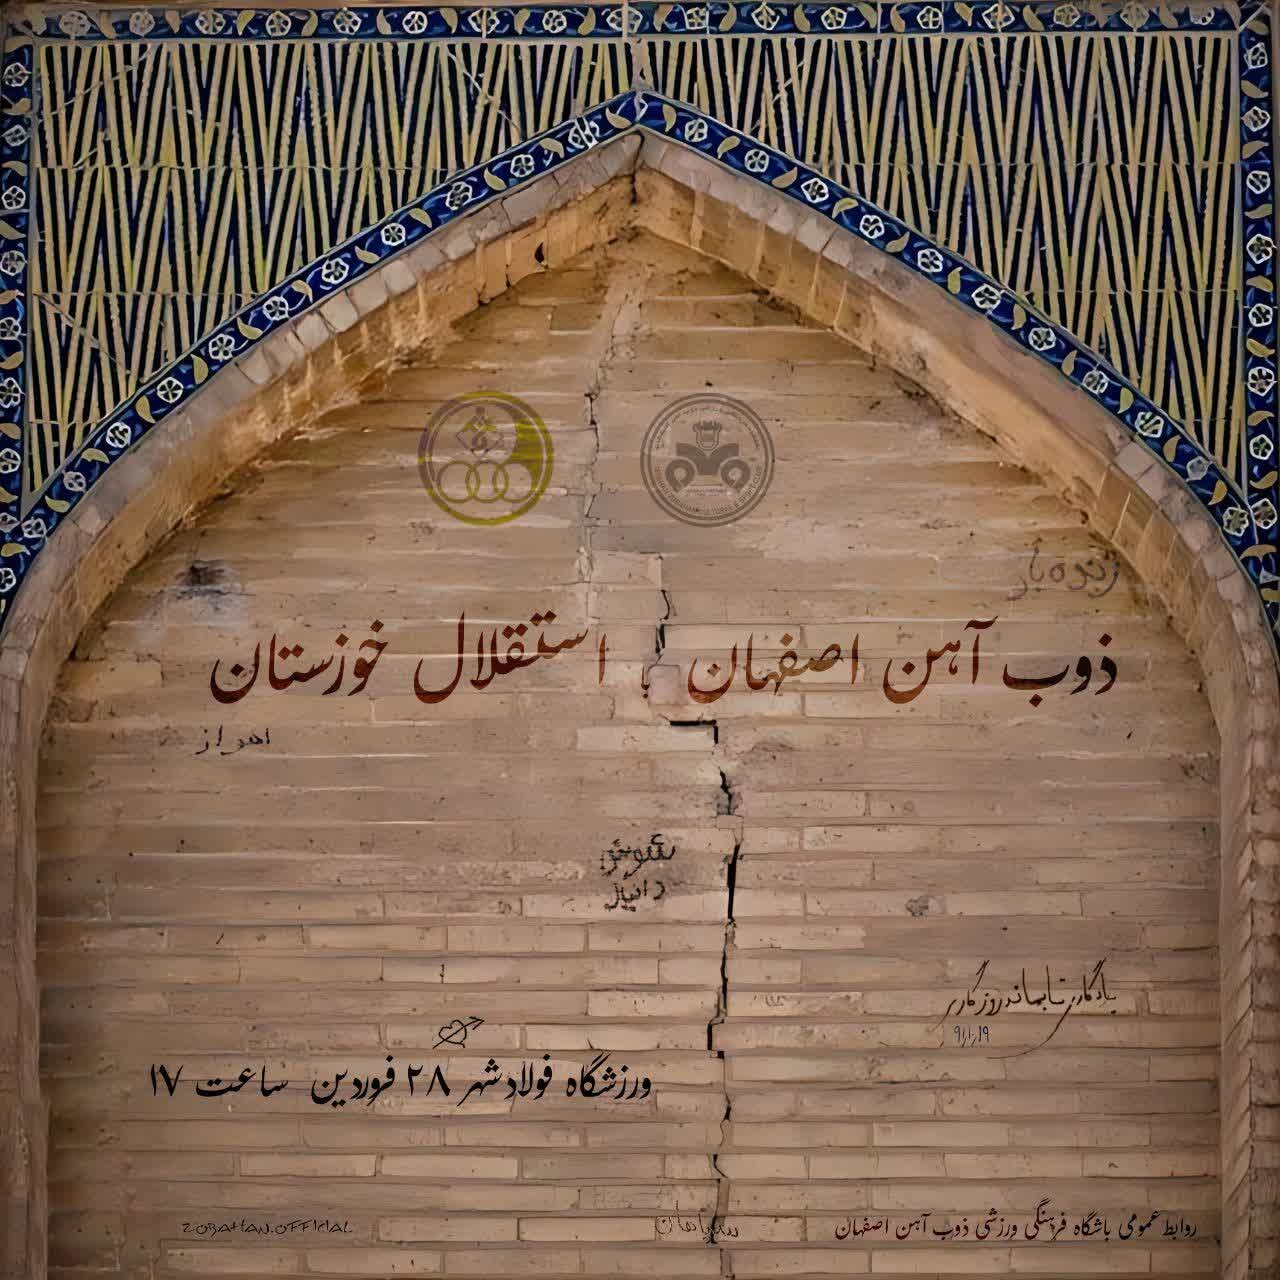 زنده باد
ذوب آهن اصفهان با استقلال خوزستان
اهواز
شوش
دانیال
یادگاری تا بماند روزگاری
۹۱،۱،۱۹
ورزشگاه فولادشهر ۲۸ فروردین ساعت ۱۷
روابط عمومی باشگاه فرهنگی ورزشی ذوب آهن اصفهان
ZOBAHAN.OFFICIAL